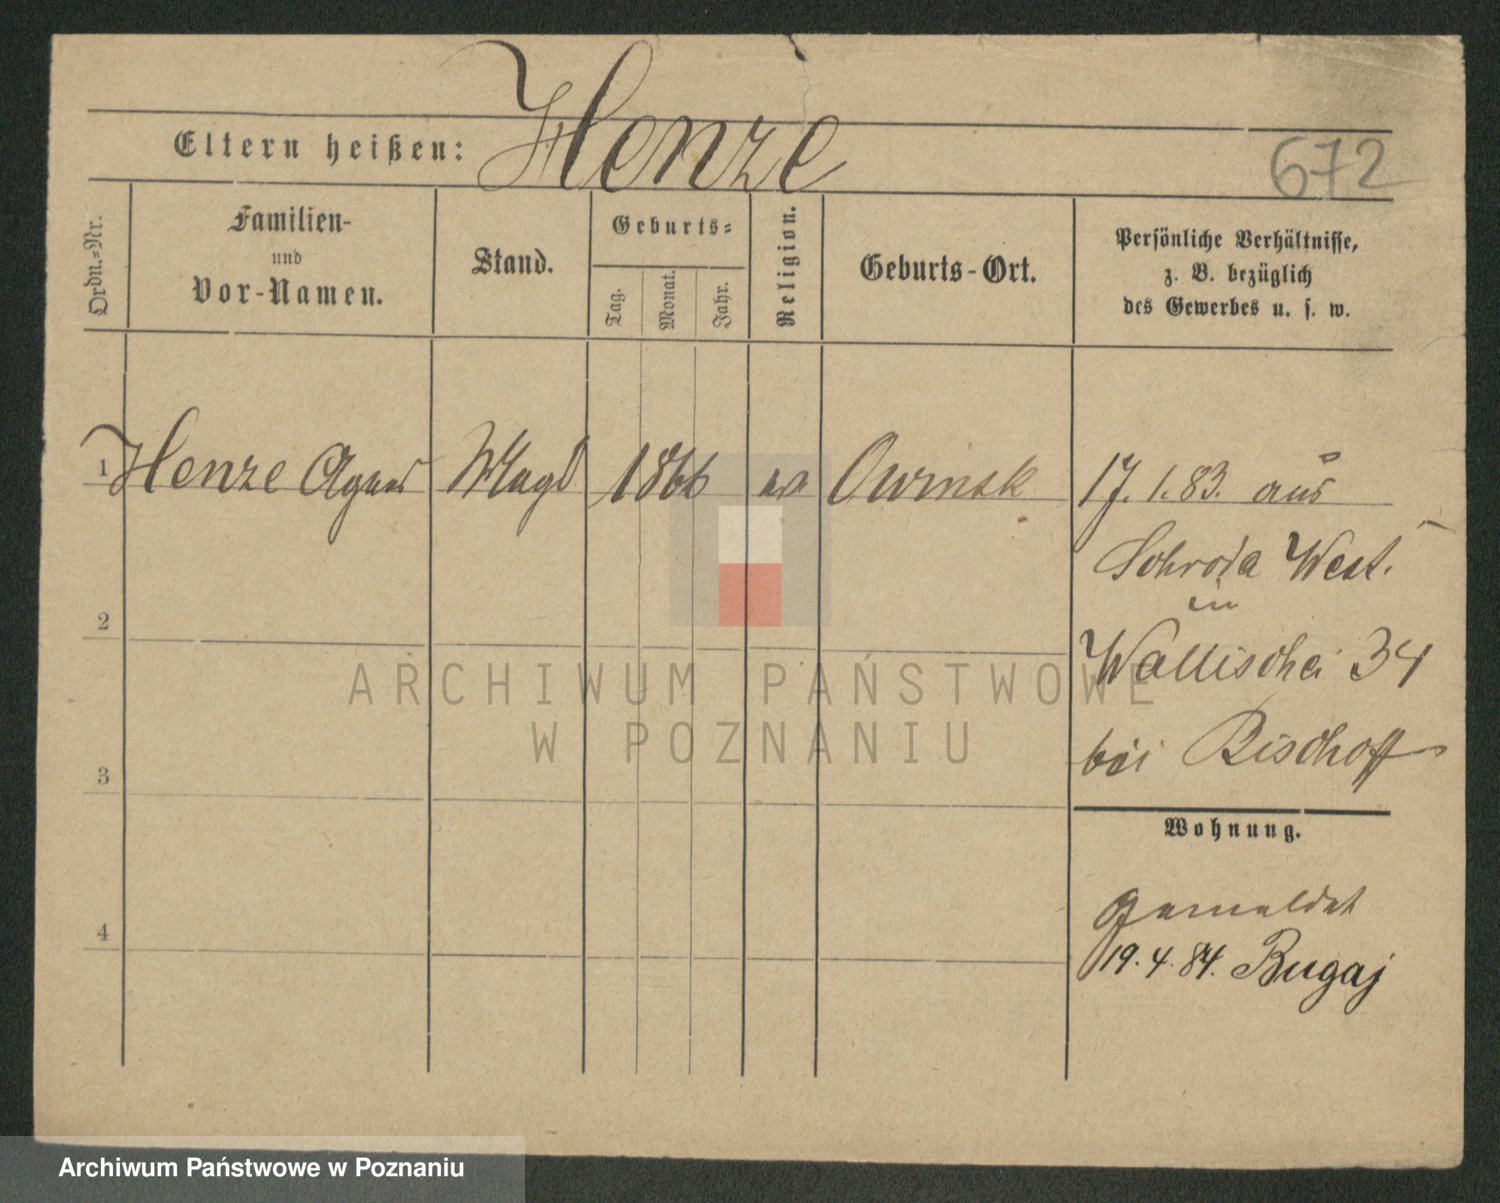 Henze
Eltern heißen:
672
Ordn.-Nr.
Familien-
und
Vor-Namen.
Stand.
Geburts-
Tag.
Monat.
Jahr.
Religion.
Geburts-Ort.
Persönliche Verhältnisse,
z. B. bezüglich
des Gewerbes u. s. w.
1 Henze Agnes Magd 1866 ev Owinsk 17. 1. 83. aus
Schroda West.
in
2
Wallischei 34
ARCHIWUM PAŃSTWOWE
W POZNANIU
bei Bischoff
3
Wohnung.
gemeldet
4
19. 4. 84. Bugaj
Archiwum Państwowe w Poznaniu